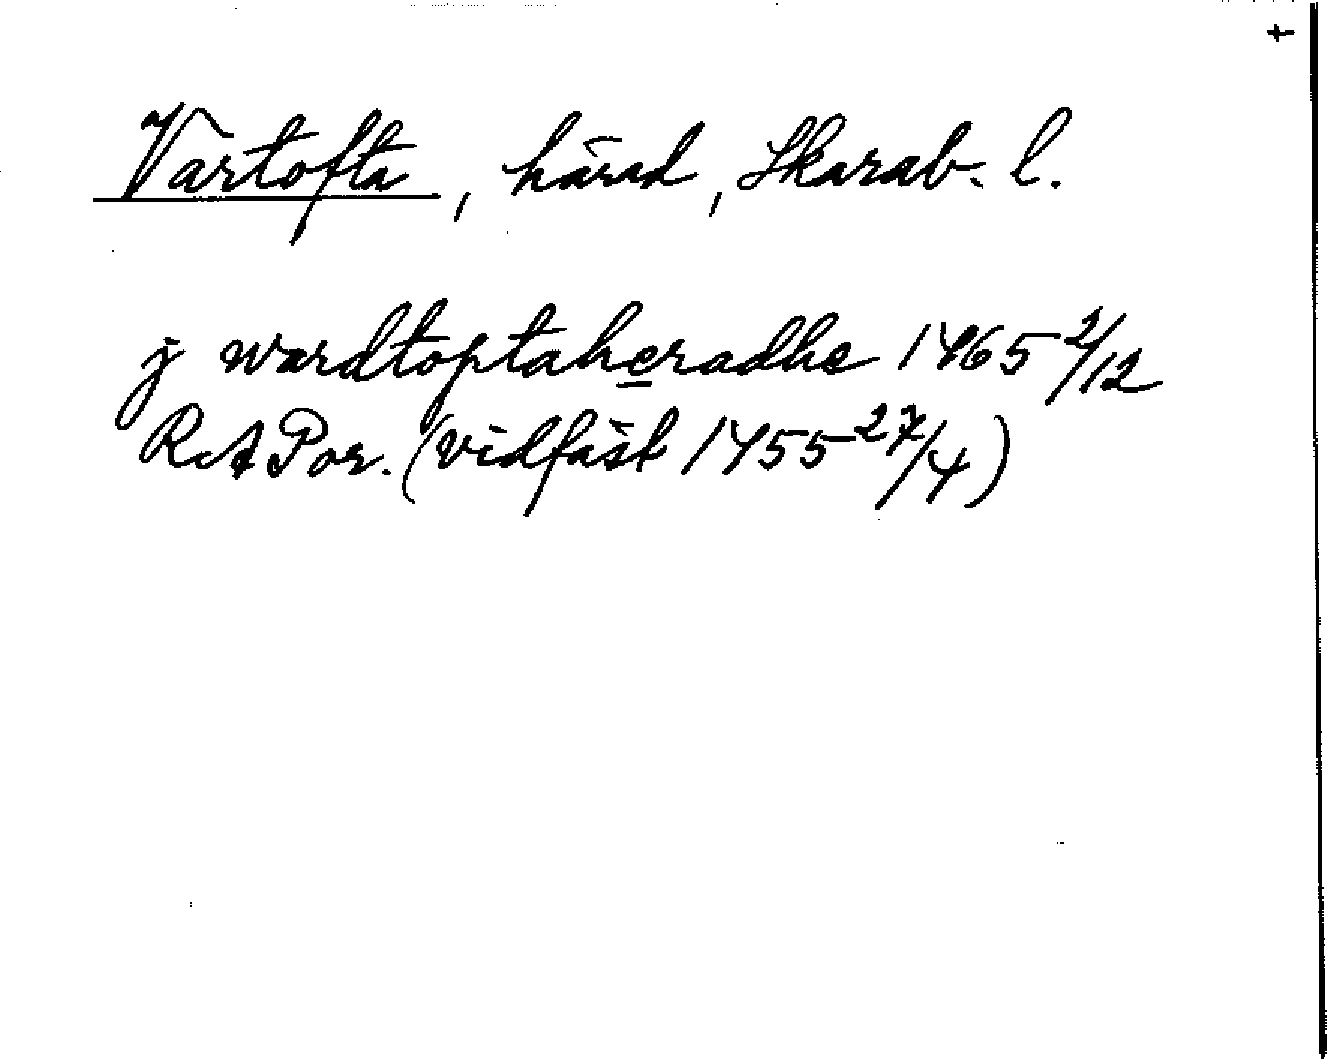 Vartofta, härad, Skarab. l.
j wardtoptaheradhe 1465 2/12
RA Por. (vidfäst 1455 27/4)